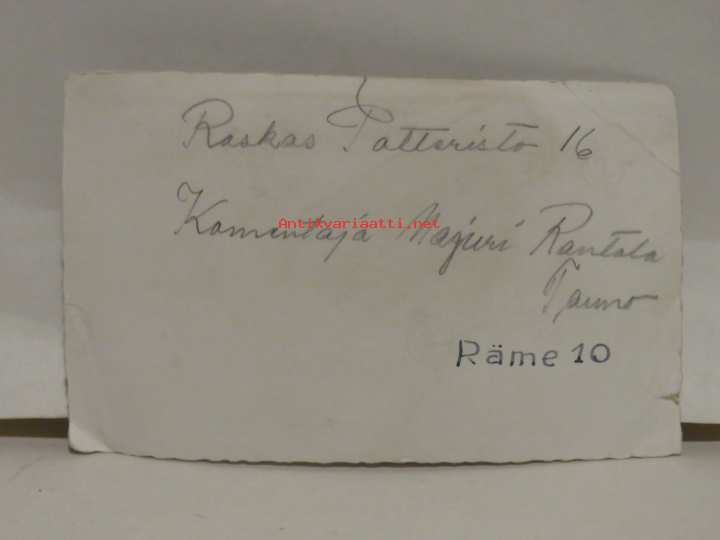 Raskas Patteristo 16
Antikvariaatti.net
Komentaja Majuri Rantala
Tauno
Räme 10